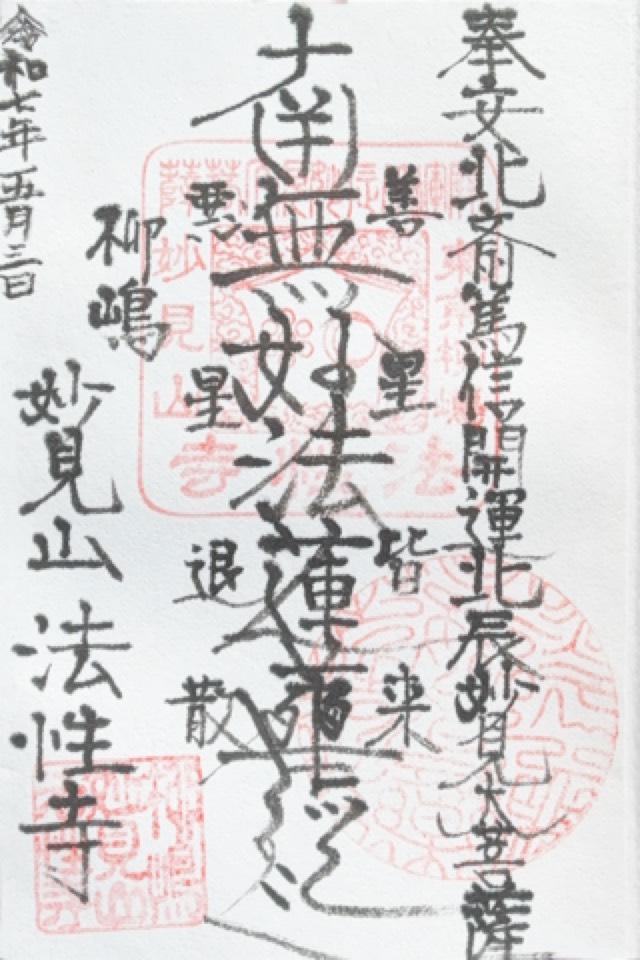 奉安北斎篤信開運北辰妙見大菩薩
善星皆来
南無妙法蓮華経
悪星退散
柳嶋
妙見山法性寺
令和七年五月三日